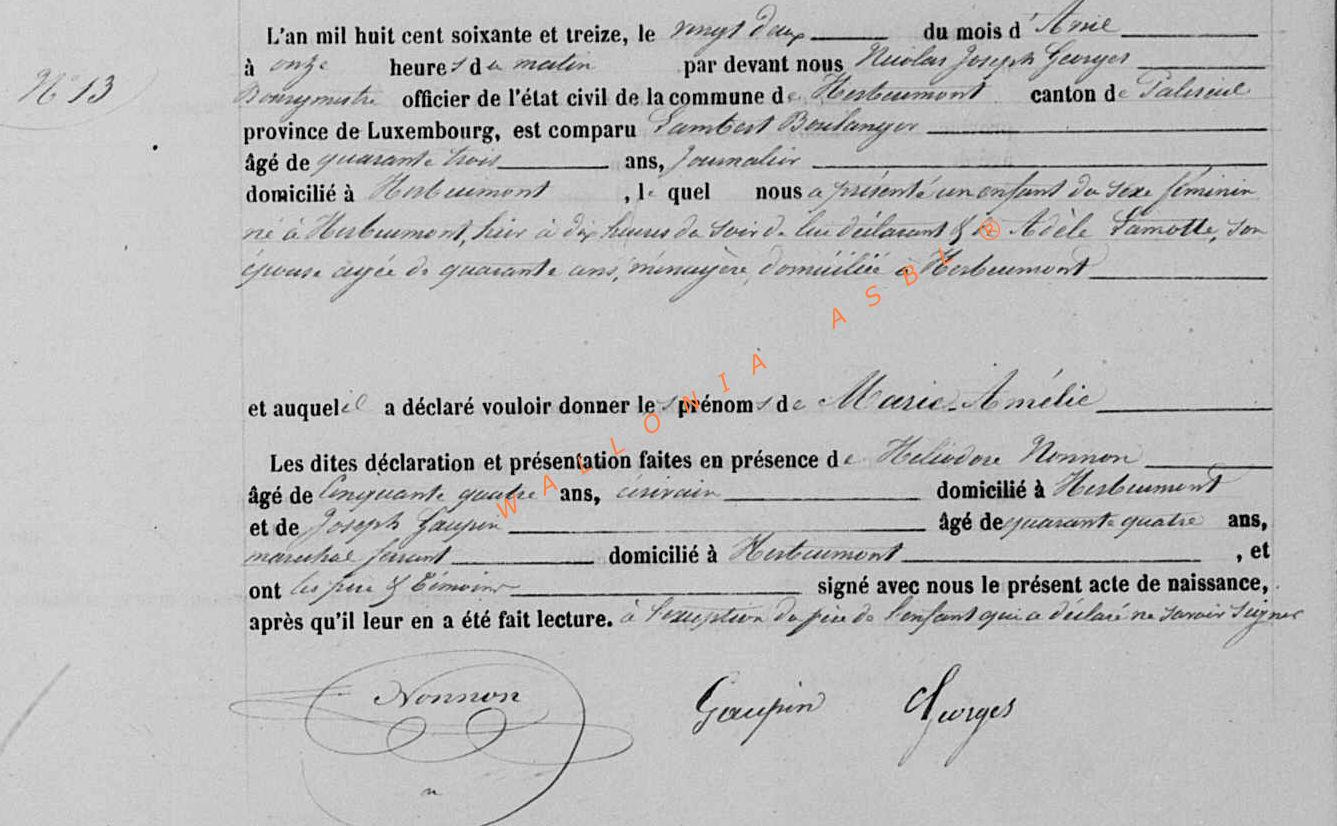 L'an mil huit cent soixante et treize, le vingt deux du mois d'
à onze heures du matin par devant nous Nicolas Joseph Georges
N° 13
Bourgmestre officier de l'état civil de la commune de Herbeumont canton de Paliseul
province de Luxembourg, est comparu Lambert Boulanger
âgé de quarante trois ans, Journalier
domicilié à Herbeumont, le quel nous a présenté un enfant du sexe féminin
né à Herbeumont, hier à dix heures du soir de lui déclarant & de Adèle Lamotte, son
épouse agée de quarante ans, ménagère, domiciliée à Herbeumont
et auquel il a déclaré vouloir donner les prénoms de Marie-Amélie
Les dites déclaration et présentation faites en présence de Héliodore Nonnon
âgé de Cinquante quatre ans, écrivain domicilié à Herbeumont
et de Joseph Gaupin âgé de quarante quatre ans,
marechal ferrant domicilié à Herbeumont, et
ont les père & témoins signé avec nous le présent acte de naissance,
après qu'il leur en a été fait lecture. à l'exception du père de l'enfant qui a déclaré ne savoir signer
Nonnon Gaupin Georges
WALLONIA ASBL ®